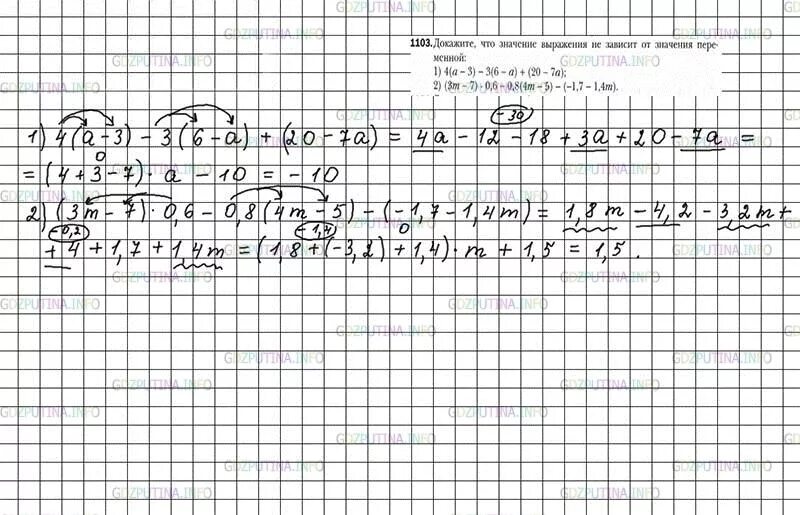 1103. Докажите, что значение выражения не зависит от значения пере-
менной:
1) 4(a − 3) − 3(6 − a) + (20 − 7a);
2) (3m − 7) · 0,6 − 0,8(4m − 5) − (−1,7 − 1,4m).
−30
1) 4(a−3) − 3(6−a) + (20−7a) = 4a − 12 − 18 + 3a + 20 − 7a =
0
= (4+3−7)·a − 10 = −10
2) (3m−7)·0,6 − 0,8(4m−5) − (−1,7−1,4m) = 1,8m − 4,2 − 3,2m +
−0,2 −1,4 0
+ 4 + 1,7 + 1,4m = (1,8 + (−3,2) + 1,4)·m + 1,5 = 1,5.
GDZPUTINA.INFO